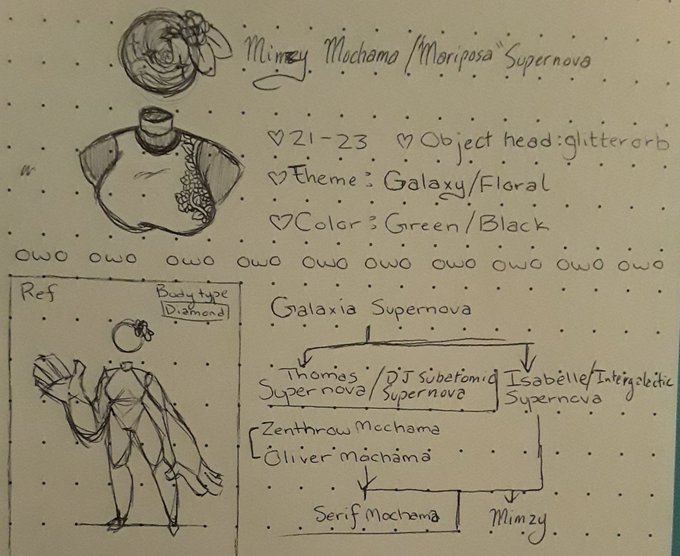 Mimzy Mochama/"Mariposa" Supernova
♡21-23 ♡Object head:glitterorb
♡Theme: Galaxy/Floral
♡Color: Green/Black
OWO OWO OWO OWO OWO OWO OWO OWO OWO OWO
Ref
Body type
Diamond
Galaxia Supernova
Thomas Supernova/DJ Subatomic Supernova
Isabelle/Intergalectic Supernova
Zenthrow Mochama
Oliver Mochama
Serif Mochama
Mimzy